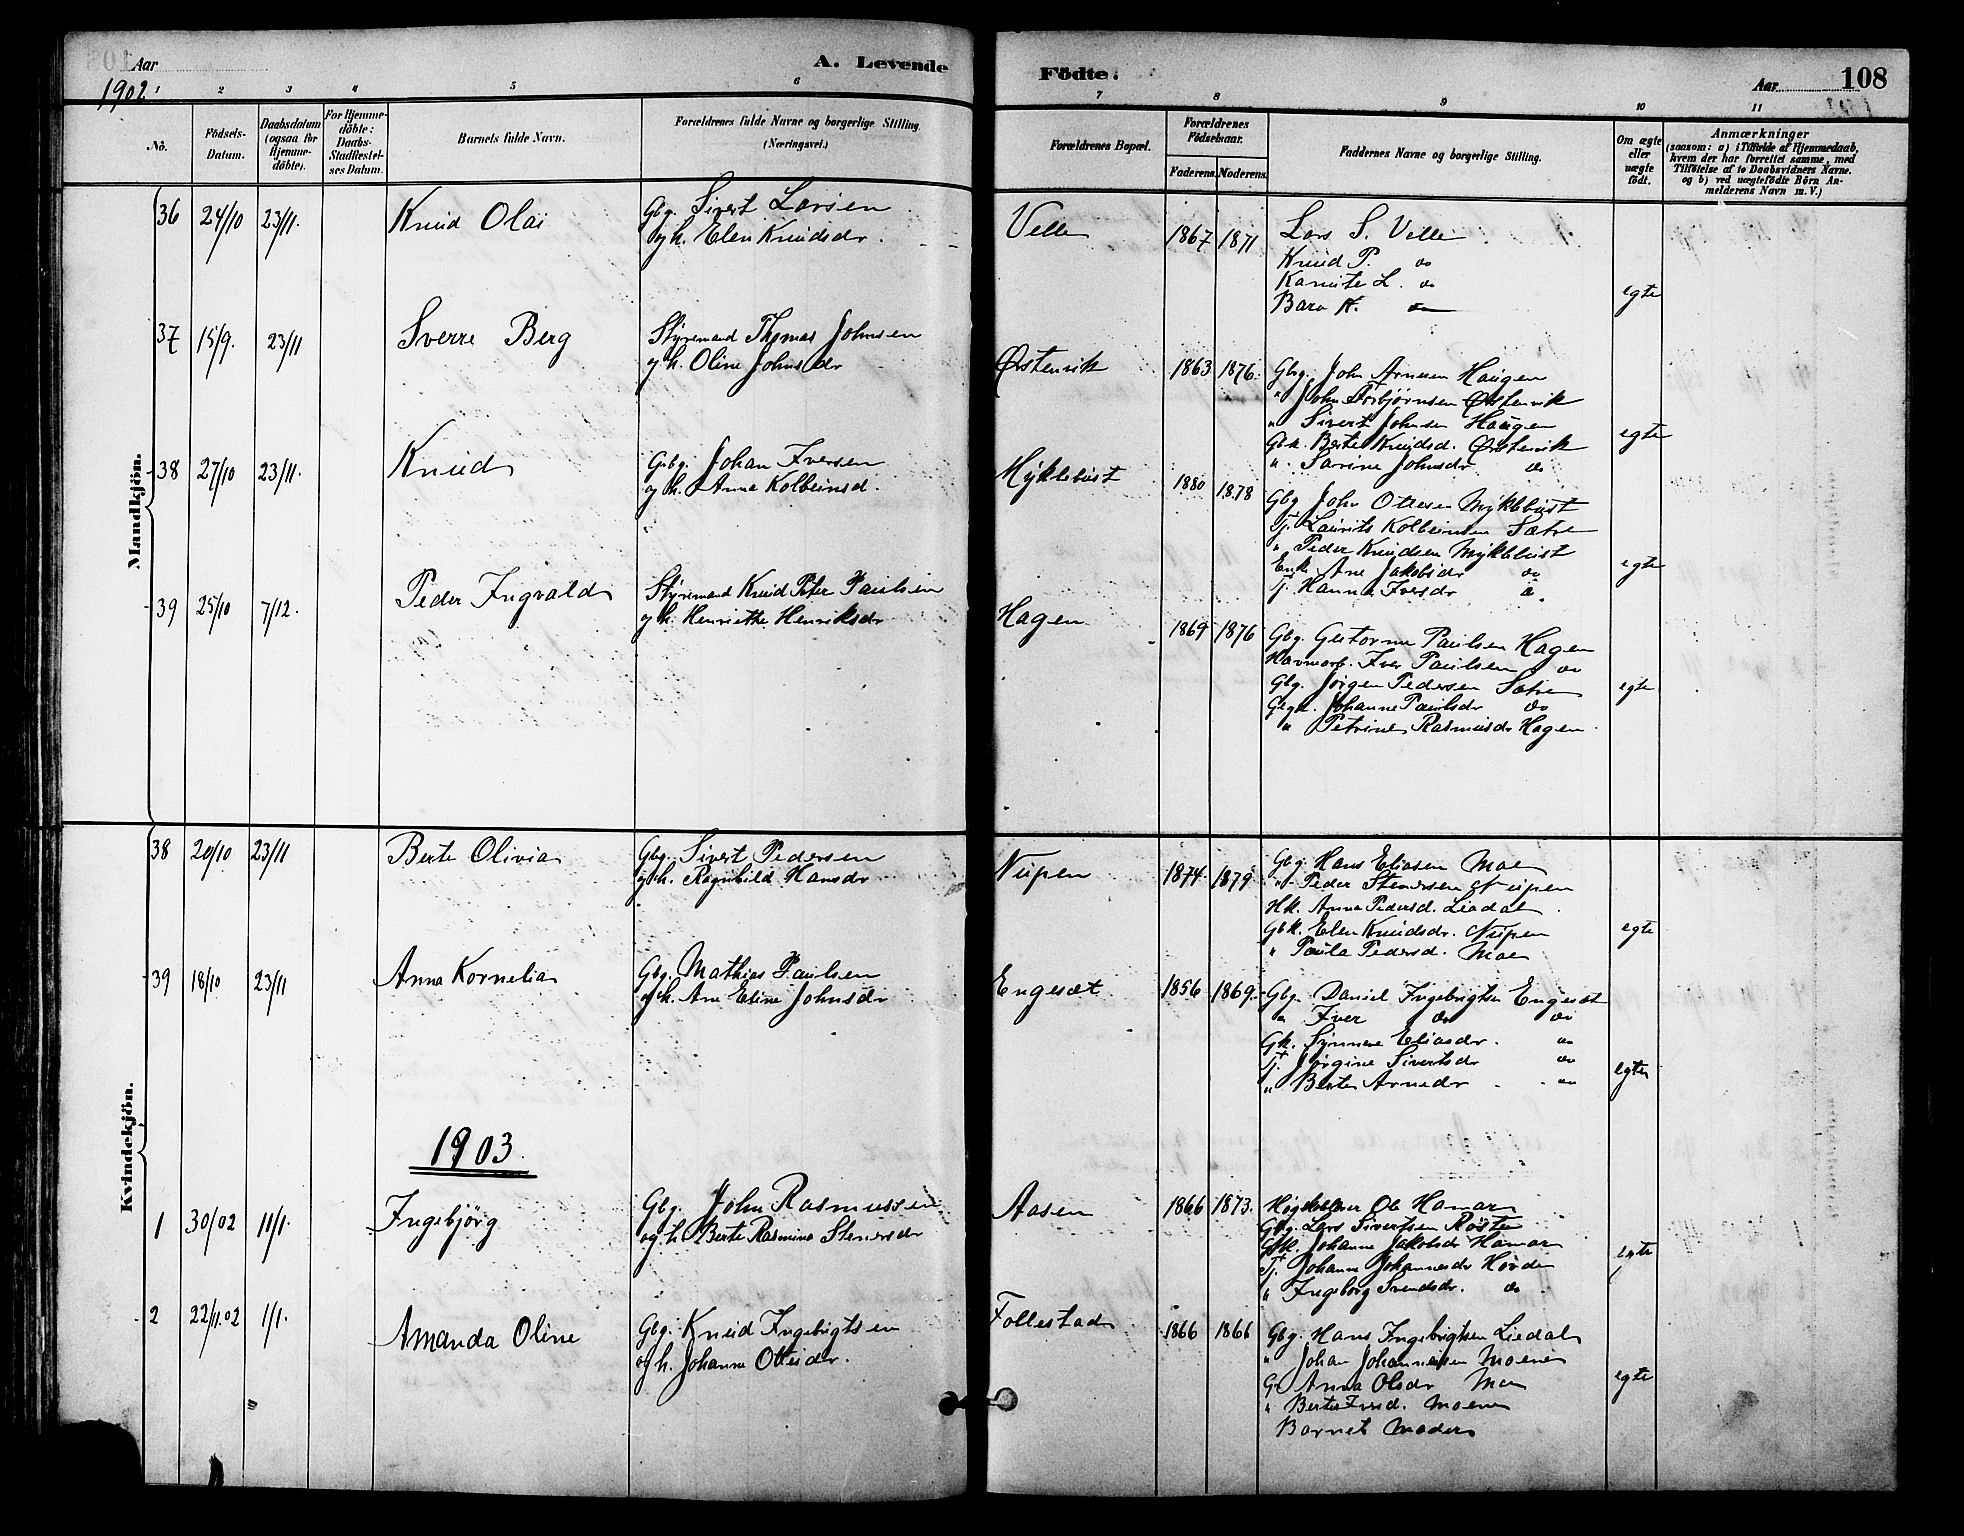 Aar
1902
A. Levende
Födte.
Aar
108
1 2 3 4 5 6 7 8 9 10 11
No.
Födsels-
Datum.
Daabsdatum
(ogsaa for
Hjemme-
döbte).
For Hjemme-
döbte:
Daabs-
Stadfæstel-
ses Datum.
Barnets fulde Navn.
Forældrenes fulde Navne og borgerlige Stilling.
(Næringsvei.)
Forældrenes Bopæl.
Forældrenes
Födselsaar.
Faderens. Moderens.
Faddernes Navne og borgerlige Stilling.
Om ægte
eller
uægte
födt.
Anmærkninger
(saasom: a) i Tilfælde af Hjemmedaab,
hvem der har forrettet samme, med
Tilföielse af to Daabsvidners Navne.
og b) ved uægtefödte Börn An-
melderens Navn m. V.)
Mandkjön.
36 24/10 23/11. Knud Olai
Gbg. Sivert Larsen
og h. Elen Knudsdr.
Velle 1867 1871
Lars S. Velle
Knud P. do
Kanute L. do
Bara K. do
egte
37 15/9. 23/11 Sverre Berg
Styrmand Thomas Johnsen
og h. Oline Johnsdr
Østenvik 1863 1876.
Gbg. John Arnesen Haugen
" John Torbjørnsen Østenvik
" Sivert Johnsen Haugen
Gbk. Berte Knudsd. Østenvik
" Sarine Johnsdr do
egte
38 27/10 23/11. Knud
Gbg. Johan Iversen
og h. Anna Kolbeinsd.
Myklebust 1880 1878
Gbg John Ottesen Myklebust
Tj. Laurits Kolbeinsen Sætre
" Peder Knudsen Myklebust
Enke Ane Jakobsdr do
Tj. Hanna Iversdr do
egte
39 25/10 7/12. Peder Ingvald
Styrmand Knud Peter Paulsen
og h. Henriette Henriksdr
Hagen 1869 1876
Gbg. Gutorm Paulsen Hagen
Havnearb. Iver Paulsen do
Gbg. Jørgen Pedersen Sætre
Gbgk. Johanne Paulsdr do
" Petrine Rasmusdr Hagen
egte
Kvindekjön.
38 20/10 23/11 Berte Olivia
Gbg. Sivert Pedersen
og h. Ragnhild Hansdr
Nupen 1874 1879
Gbg. Hans Eliasen Moe
" Peder Stenersen Nupen
Hk. Anna Pedersd. Liadal
Gbk. Elen Knudsdr. Nupen
" Paula Pedersd. Moe
egte
39 18/10 23/11 Anna Kornelia
Gbg. Mathias Paulsen
og h. Ane Eline Johnsdr
Engesæt 1856 1869
Gbg. Daniel Ingebrigtsen Engesæt
" Iver do do
Gk. Synneve Eliasdr. do
Tj. Jørgine Sivertsdr do
" Berte Arnedr do
egte
1903.
1 30/02 11/1. Ingebjörg
Gbg. John Rasmussen
og h. Berte Rasmina Stenersdr
Aasen 1866 1873.
Ole Hamar
Gbg. Lars Sivertsen Røste
Gbk. Johanne Jakobsdr Hamar
Tj. Johanne Johannesdr Hovde
" Ingeborg Svendsdr. do
egte
2 22/11.02 1/1. Amanda Oline
Gbg. Knud Ingebrigtsen
og h. Johanne Ottesdr.
Follestad 1866 1866
Gbg. Hans Ingebrigtsen Liedal
" Johan Johannesen Moene
G Anna Olsdr Moe
" Berte Iversd. Moene
Barnets Moder
egte